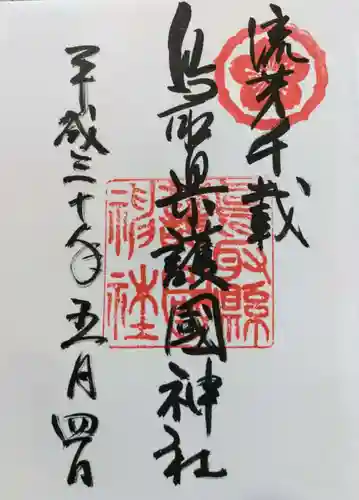 流芳千載
鳥取県護國神社
平成三十年五月四日
鳥取縣護國神社